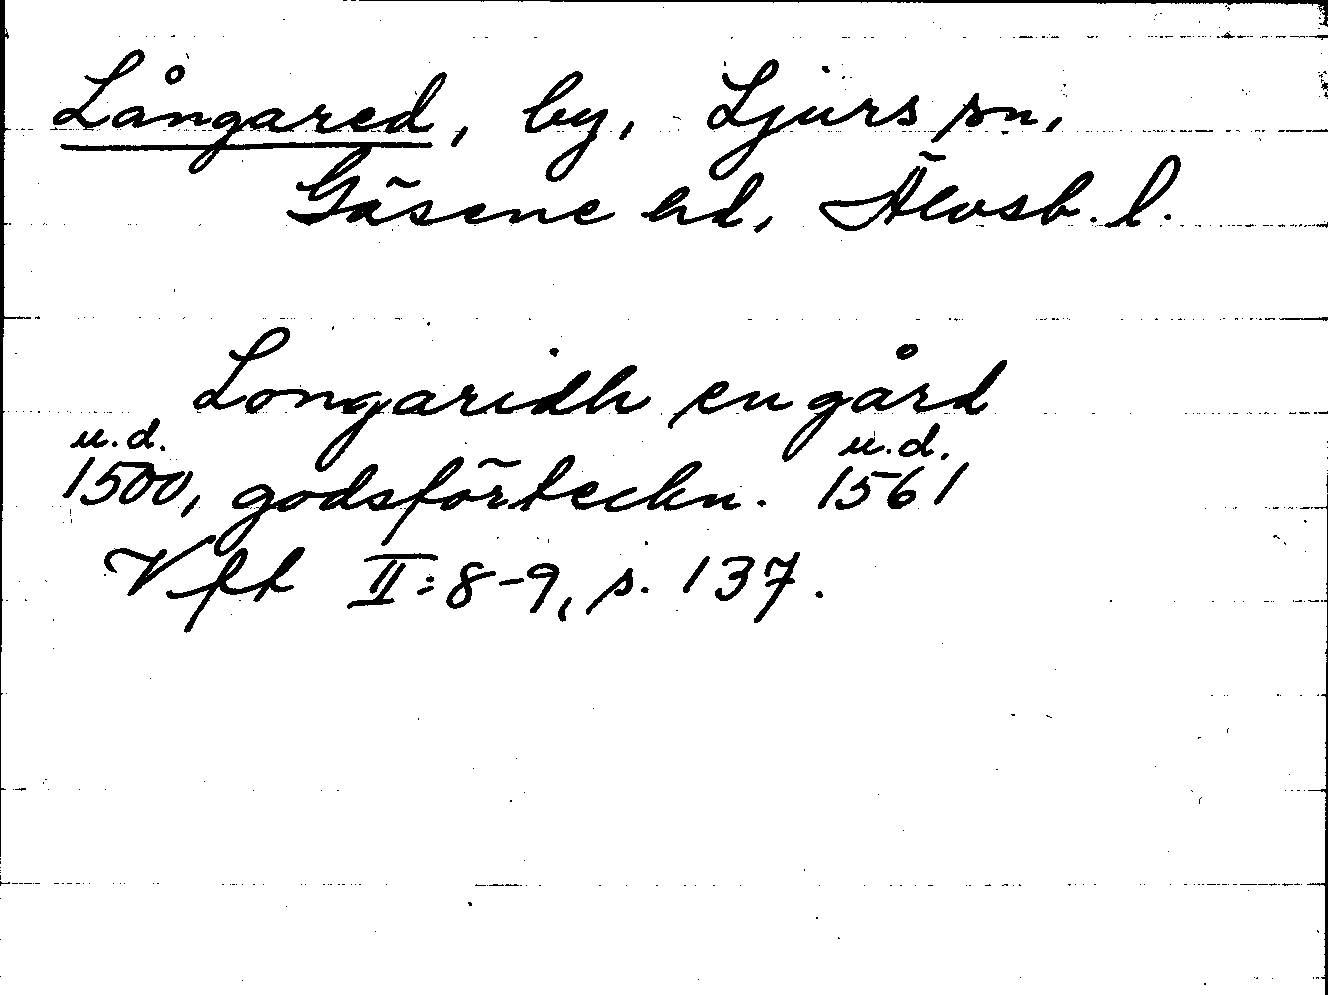 Långared, by, Ljurs sn,
Gäsene hd, Älvsb. l.
Longaridh en gård
u.d. u.d.
1500, godsförteckn. 1561
Vft II:8-9, s. 137.